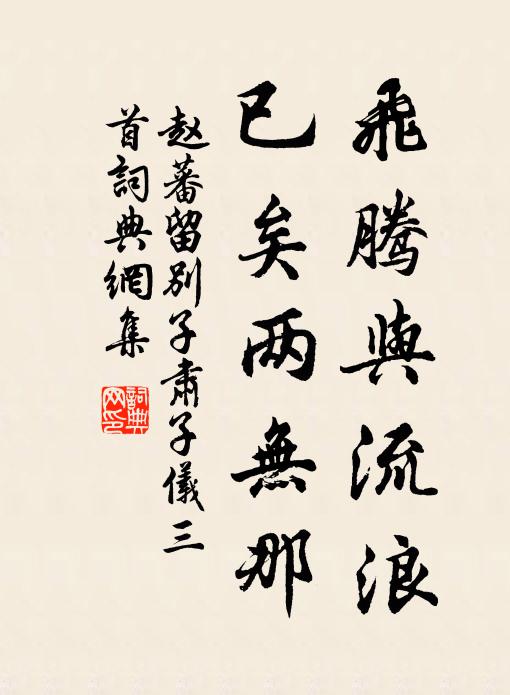 飛騰與流浪
已矣兩無那
赵蕃留别子肅子儀三
首詞典網集
詞典
网印